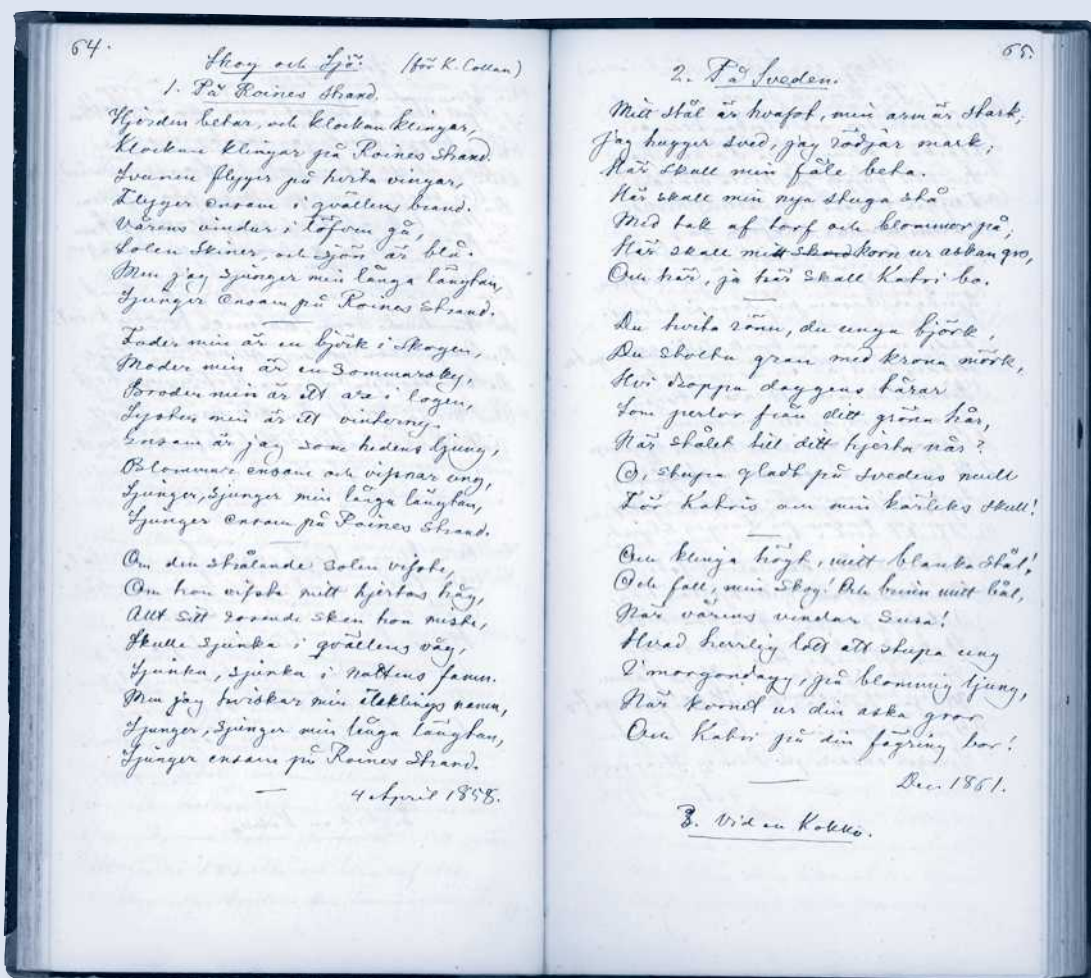 64.
Skog och Sjö. (för K. Collan)
1. På Roines strand.
Hjorden betar, och klockan klingar,
Klockan klingar på Roines strand.
Svanen flyger på hvita vingar,
Flyger ensam i qvällens brand.
Vårens vindar i löfven gå,
Solen skiner, och sjön är blå.
Men jag sjunger min långa längtan,
Sjunger ensam på Roines strand.
Fader min är en björk i skogen,
Moder min är en sommarsky,
Broder min är ett ax i logen,
Syster min är ett vinterny.
Ensam är jag, som hedens ljung,
Blommar ensam och vissnar ung,
Sjunger, sjunger min långa längtan,
Sjunger ensam på Roines strand.
Om den strålande solen visste,
Om hon visste mitt hjertas håg,
Allt sitt rosende sken hon miste,
Skulle sjunka i qvällens våg,
Sjunka, sjunka i nattens famn.
Men jag hviskar min älsklings namn,
Sjunger, sjunger min långa längtan,
Sjunger ensam på Roines strand.
4 April 1858.
65.
2. På Sveden.
Mitt stål är hvasst, min arm är stark,
Jag hugger sved, jag rödjar mark,
Här skall min fåle beta.
Här skall min nya stuga stå
Med tak af torf och blommor på;
Här skall mitt korn ur askan gro,
Och här, ja här skall Katri bo.
Du hvita rönn, du unga björk,
Du stolta gran med krona mörk,
Hvi droppa daggens tårar
Som perlor från ditt gröna hår,
När stålet till ditt hjerta når?
O, stupa gladt på svedens mull
För Katris och min kärleks skull!
Och klinga högt, mitt blanka stål!
Och fall, min skog! Och brinn mitt bål,
När vårens vindar susa!
Hvad herrlig lott att stupa ung
I morgondagg, på blommig ljung,
När kornet ur din aska gror
Och Katri på din fägring bor!
Dec. 1861.
3. Vid en Kokko.